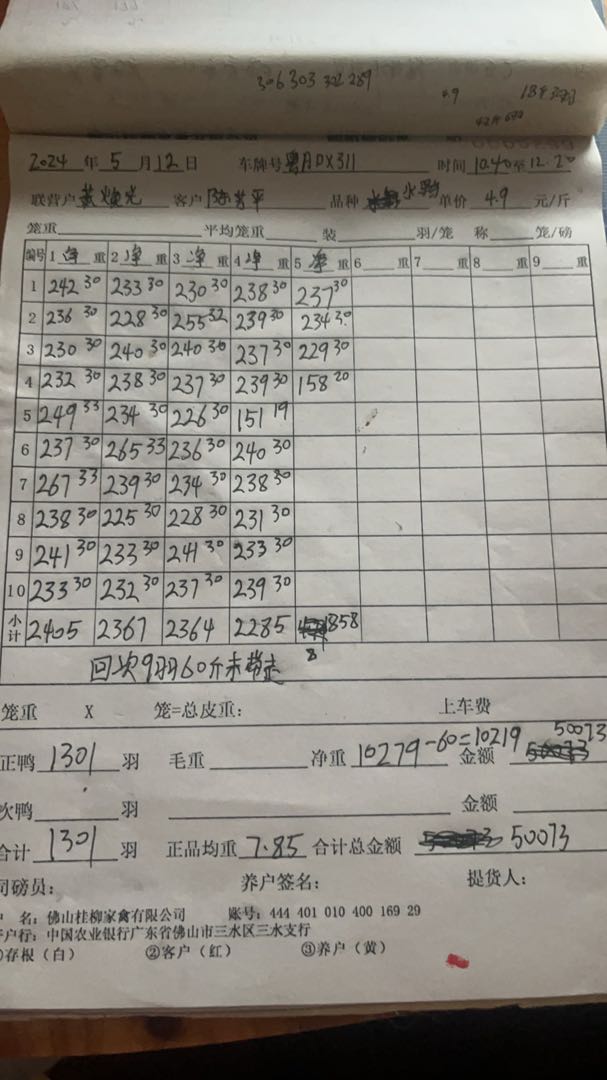 306 303 322 289
4.9
2024 年 5 月 12 日 车牌号 粤ADX311 时间 10.40至12.20
联营户 黄焕光 客户 陈芳平 品种 水鸭 单价 4.9 元/斤
笼重 平均笼重 装 羽/笼 称 笼/磅
编号 1 净 重 2 净 重 3 净 重 4 净 重 5 净 重 6 重 7 重 8 重 9 重
1 242 30 233 30 230 30 238 30 237 30
2 236 30 228 30 255 32 239 30 234 30
3 230 30 240 30 240 30 237 30 229 30
4 232 30 238 30 237 30 239 30 158 20
5 249 33 234 30 226 30 151 19
6 237 30 265 33 236 30 240 30
7 267 33 239 30 234 30 238 30
8 238 30 225 30 228 30 231 30
9 241 30 233 30 241 30 233 30
10 233 30 232 30 237 30 239 30
小计 2405 2367 2364 2285 858
8
回次9羽60斤未带走
笼重 X 笼=总皮重： 上车费
正鸭 1301 羽 毛重 净重 10279-60=10219 金额 50073
次鸭 羽 金额
合计 1301 羽 正品均重 7.85 合计总金额 50073
司磅员： 养户签名： 提货人：
户 名：佛山桂柳家禽有限公司 账号：444 401 010 400 169 29
开户行：中国农业银行广东省佛山市三水区三水支行
①存根（白） ②客户（红） ③养户（黄）